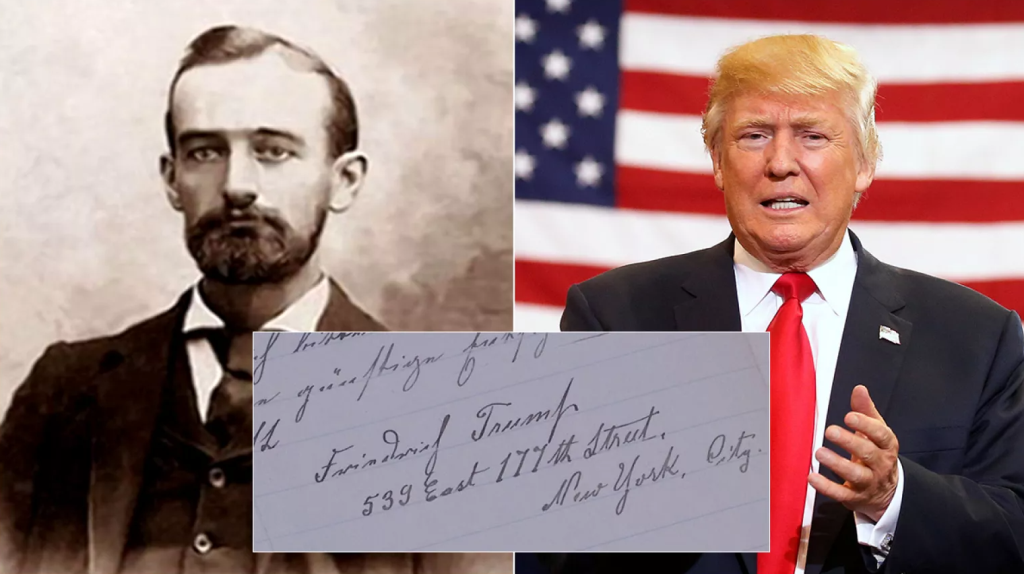 günstigen
Friedrich Trump
539 East 177th Street.
New York, City.